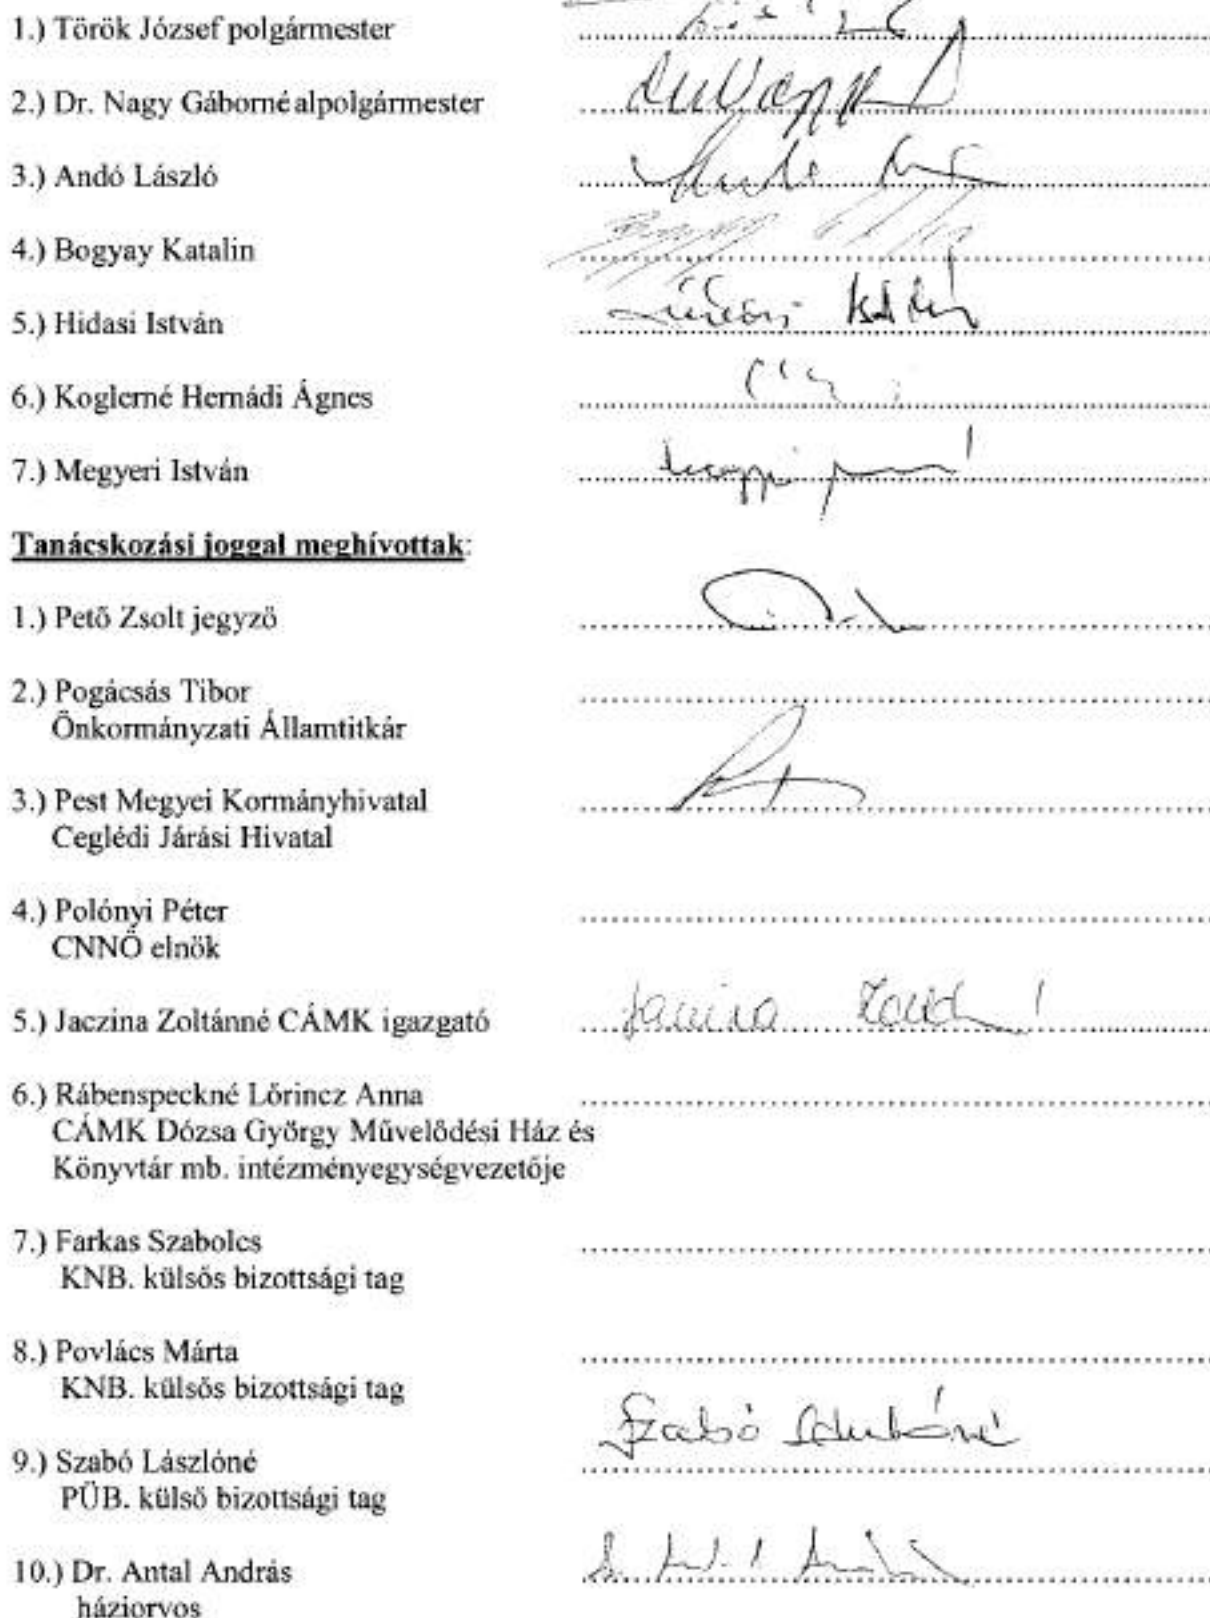 1.) Török József polgármester
2.) Dr. Nagy Gáborné alpolgármester
3.) Andó László
4.) Bogyay Katalin
5.) Hidasi István
6.) Koglerné Hernádi Ágnes
7.) Megyeri István
Tanácskozási joggal meghívottak:
1.) Pető Zsolt jegyző
2.) Pogácsás Tibor
Önkormányzati Államtitkár
3.) Pest Megyei Kormányhivatal
Ceglédi Járási Hivatal
4.) Polónyi Péter
CNNÖ elnök
5.) Jaczina Zoltánné CÁMK igazgató
6.) Rábenspeckné Lőrincz Anna
CÁMK Dózsa György Művelődési Ház és
Könyvtár mb. intézményegységvezetője
7.) Farkas Szabolcs
KNB. külsős bizottsági tag
8.) Povlács Márta
KNB. külsős bizottsági tag
Szabó
9.) Szabó Lászlóné
PÜB. külső bizottsági tag
10.) Dr. Antal András
háziorvos